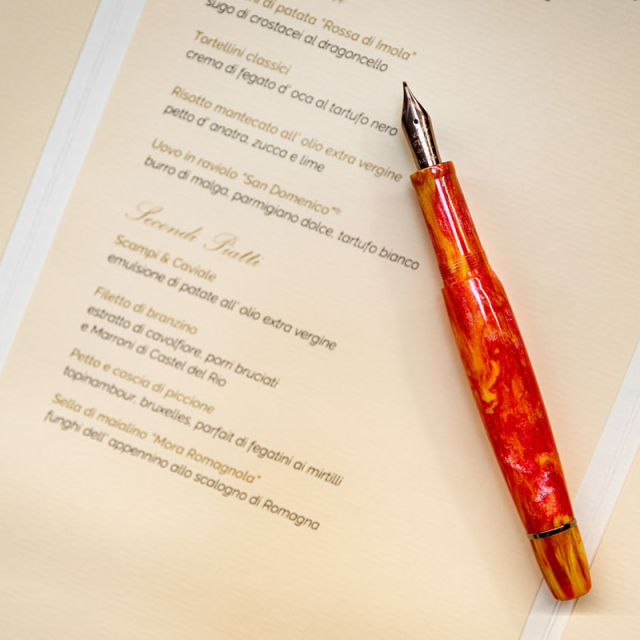 di patata "Rossa di Imola"
sugo di crostacei al dragoncello
Tortellini classici
crema di fegato d'oca al tartufo nero
Risotto mantecato all'olio extra vergine
petto d'anatra, zucca e lime
Uovo in raviolo "San Domenico"®
burro di malga, parmigiano dolce, tartufo bianco
Secondi Piatti
Scampi & Caviale
emulsione di patate all'olio extra vergine
Filetto di branzino
estratto di cavolfiore, porri bruciati
e Marroni di Castel del Rio
Petto e coscia di piccione
topinambour, bruxelles, parfait di fegatini ai mirtilli
Sella di maialino "Mora Romagnola"
funghi dell'appennino allo scalogno di Romagna